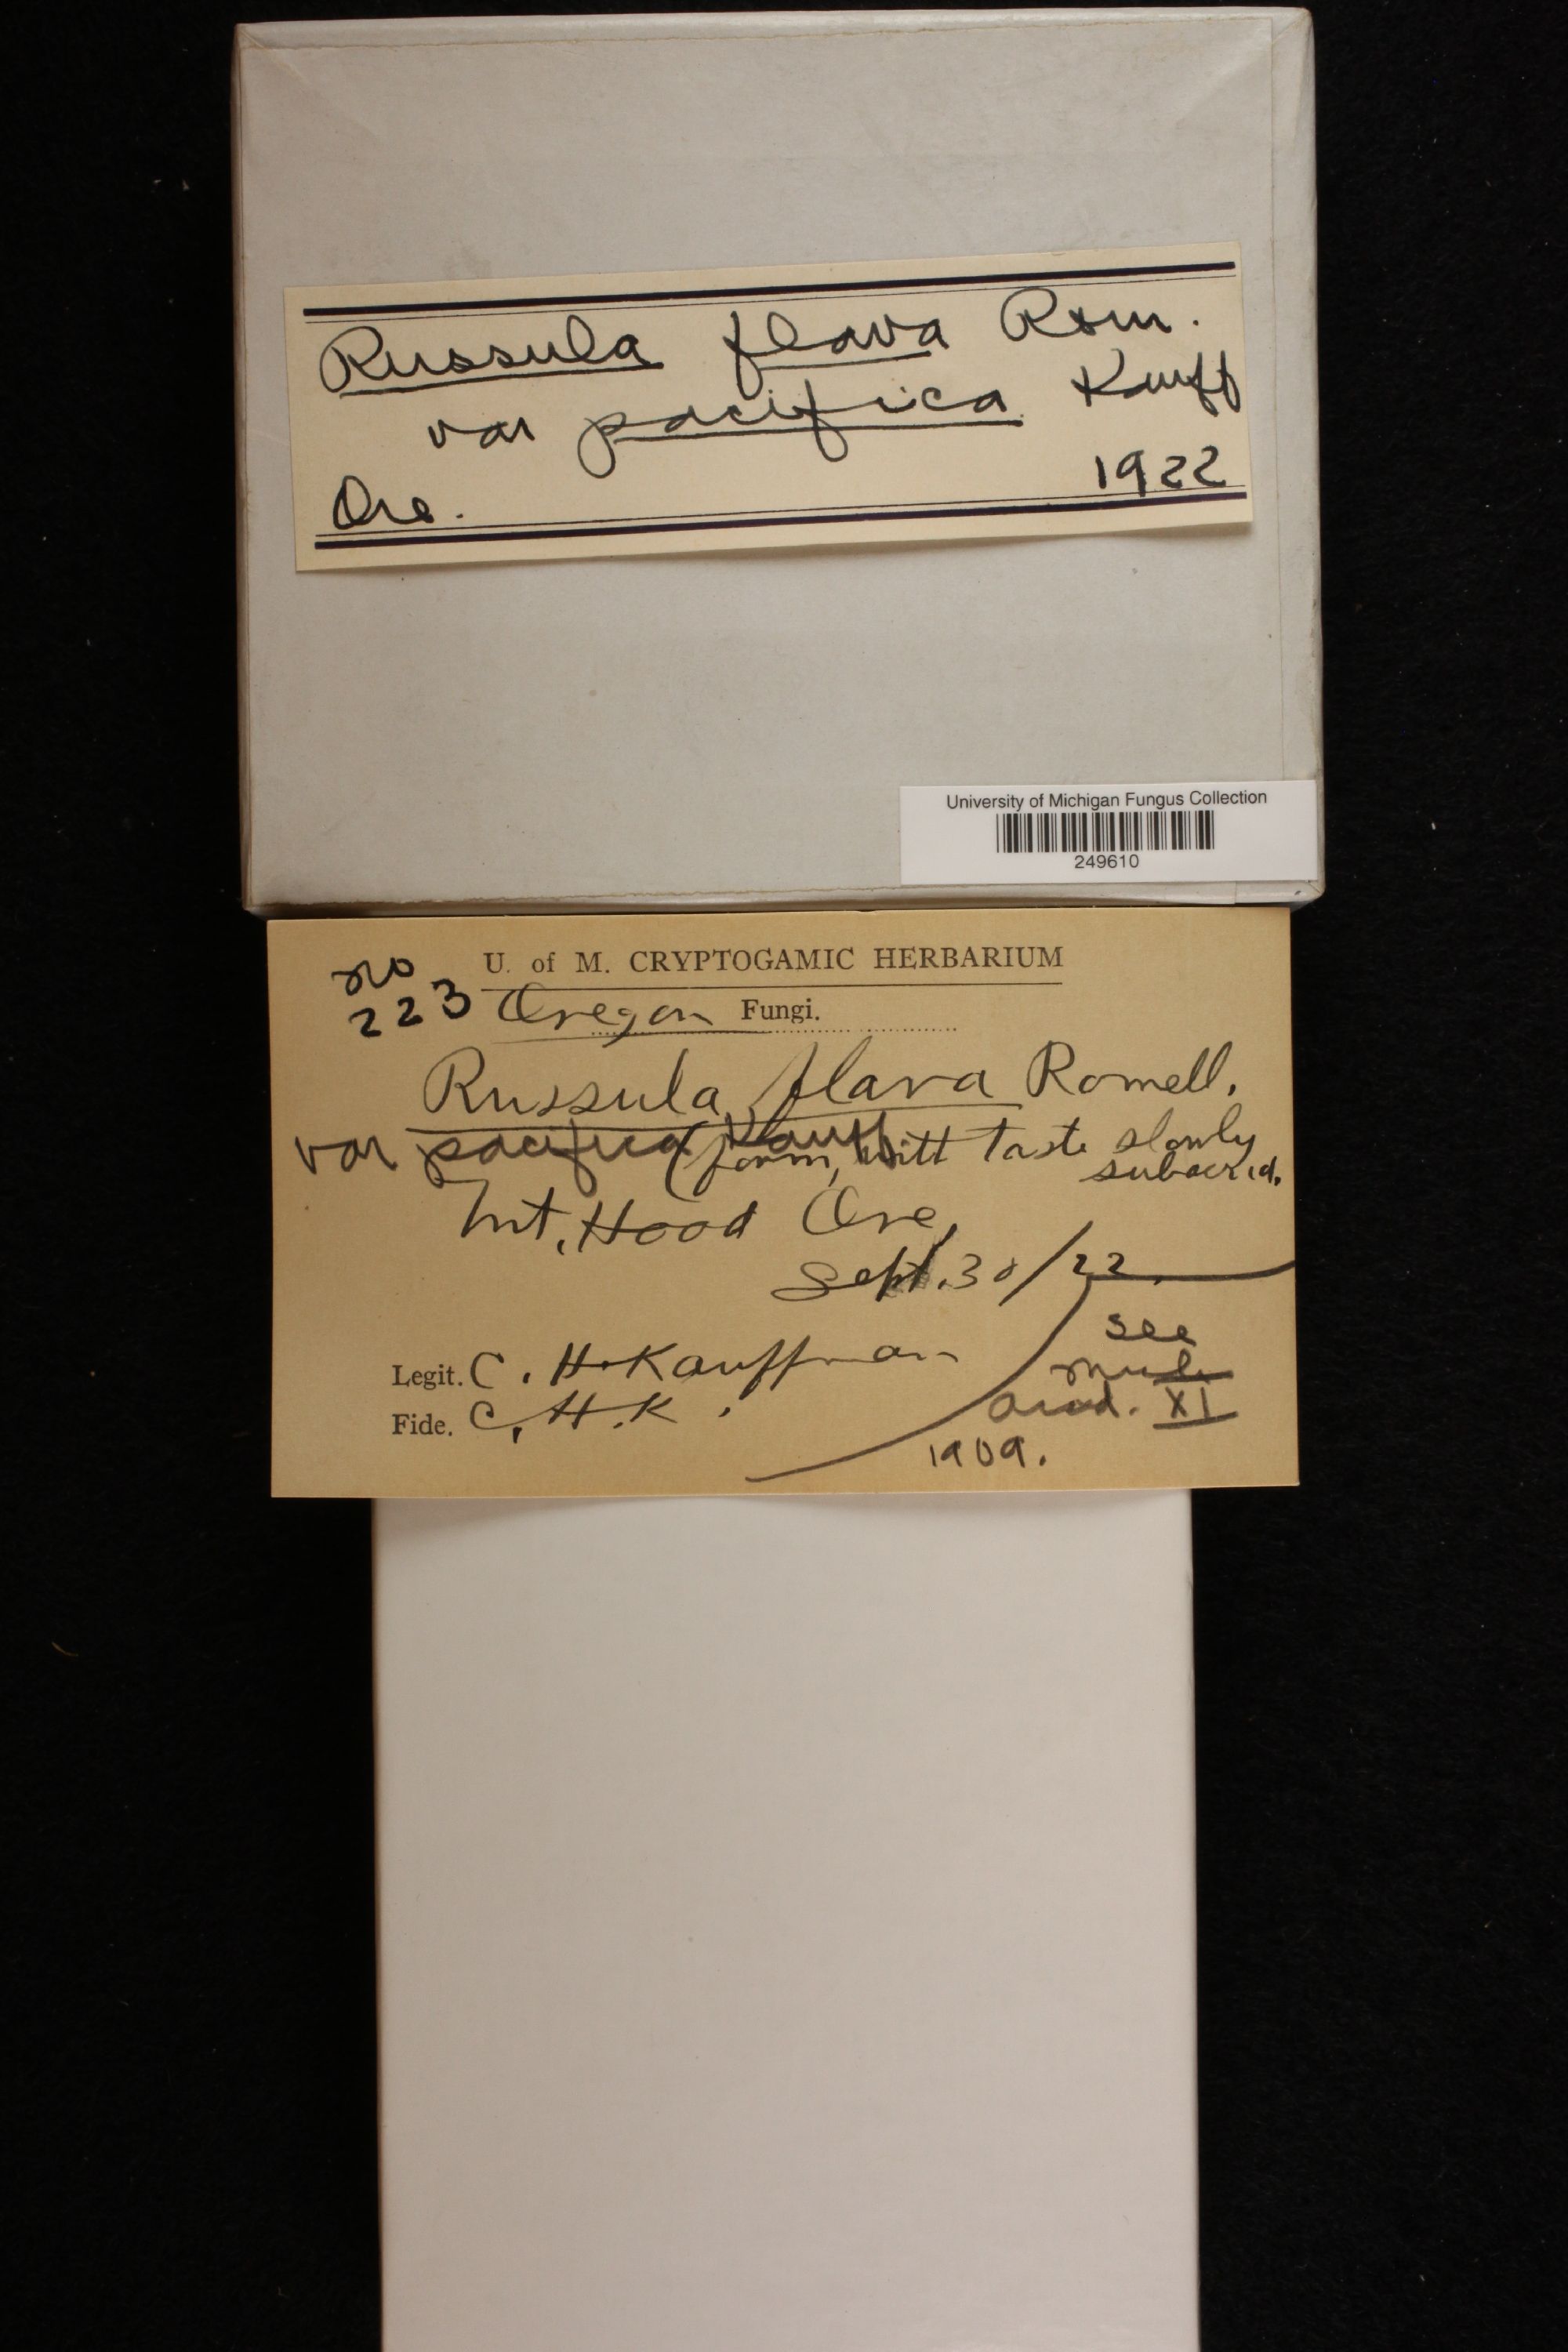 Russula flava Rom.
var pacifica Kauff
Ore. 1922
University of Michigan Fungus Collection
249610
U. of M. CRYPTOGAMIC HERBARIUM
no
223 Oregon Fungi.
Russula flava Romell.
var pacifica Kauff
(form, with taste slowly
subacrid.
Mt. Hood Ore,
Sept. 30/22.
see
Legit. C. H. Kauffman
XI
Fide. C. H. K.
1909.